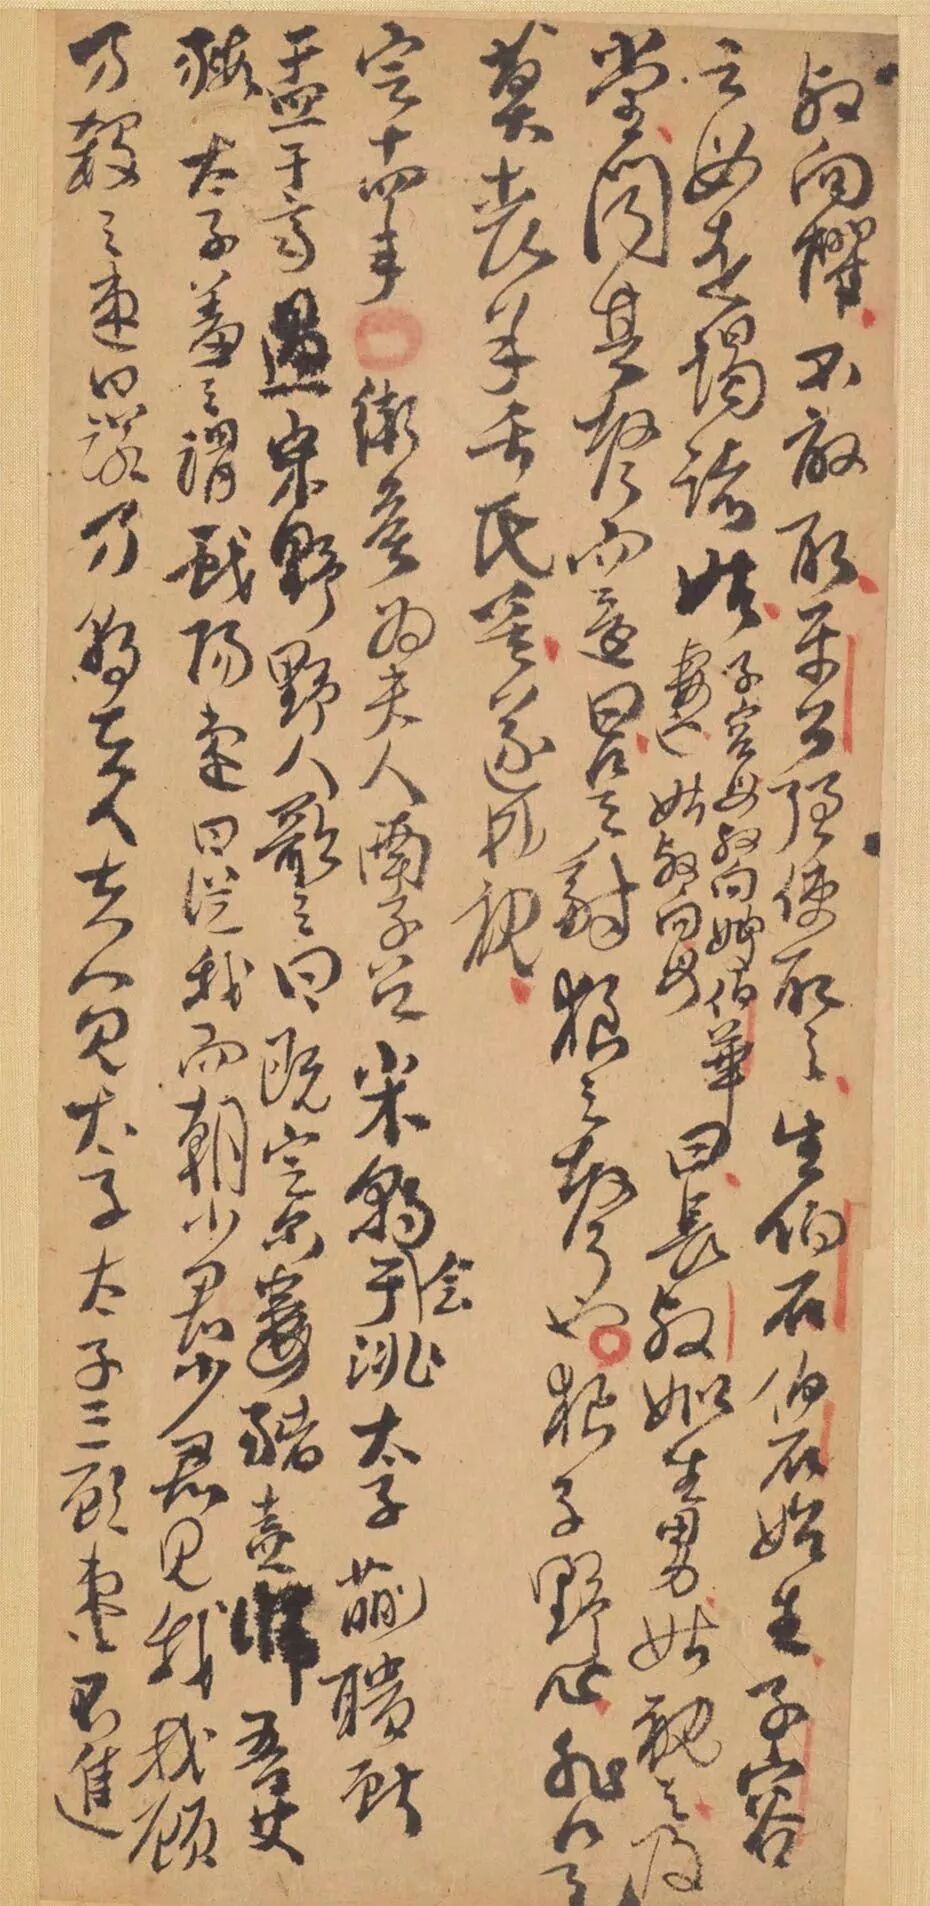 叔向懼不敢取平公强使取之生伯石伯石始生子容
之母走謁諸姑子容母叔向嫂伯華妻也姑叔向母曰長叔姒生男姑視之及
堂聞其聲而還曰是豺狼之聲也狼子野心非是
莫喪羊舌氏矣遂弗視
定十四年衛侯为夫人南子召宋朝会于洮太子蒯聵献
盂于齊過宋野野人歌之曰既定尔婁豬盍歸吾艾
豭太子羞之謂戲陽速曰從我而朝少君少君見我我顧
乃殺之速曰諾乃朝夫人夫人見太子太子三顧速不進